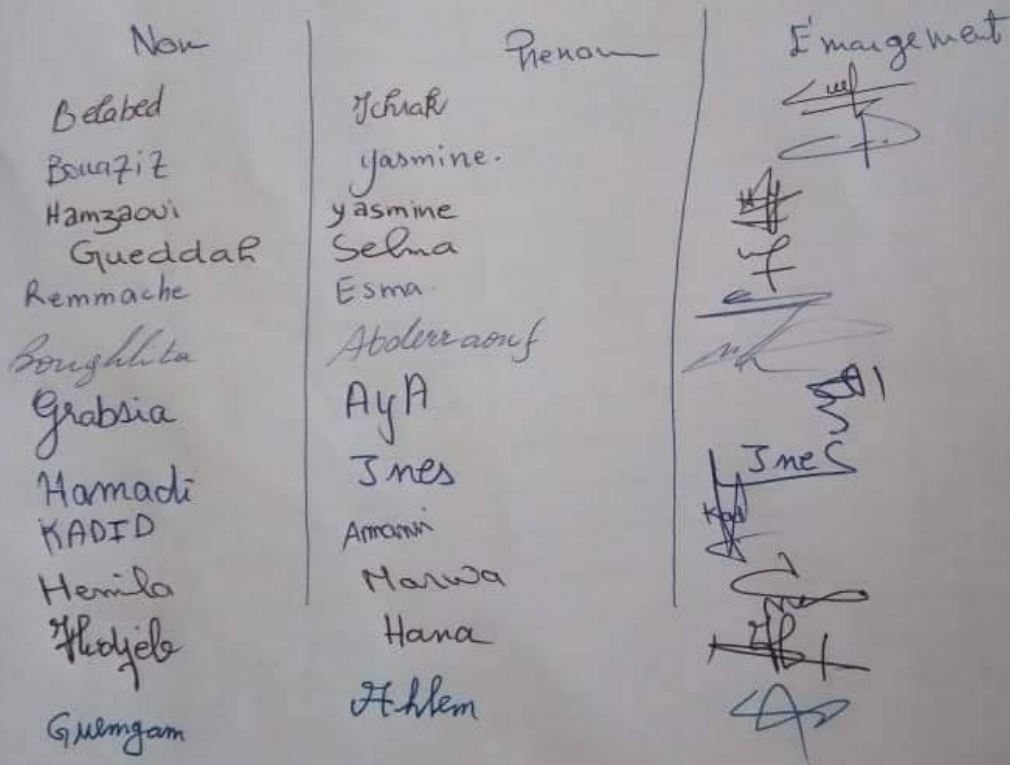 Nom Prenom Émargement
Belabed Ichrak
Bouaziz yasmine.
Hamzaoui yasmine
Gueddah Selma
Remmache Esma.
Boughlita Abderraouf
Grabsia AyA
Hamadi Ines Ines
KADID Amani Kad
Hemila Marwa
Hana
Guemgam Ahlem